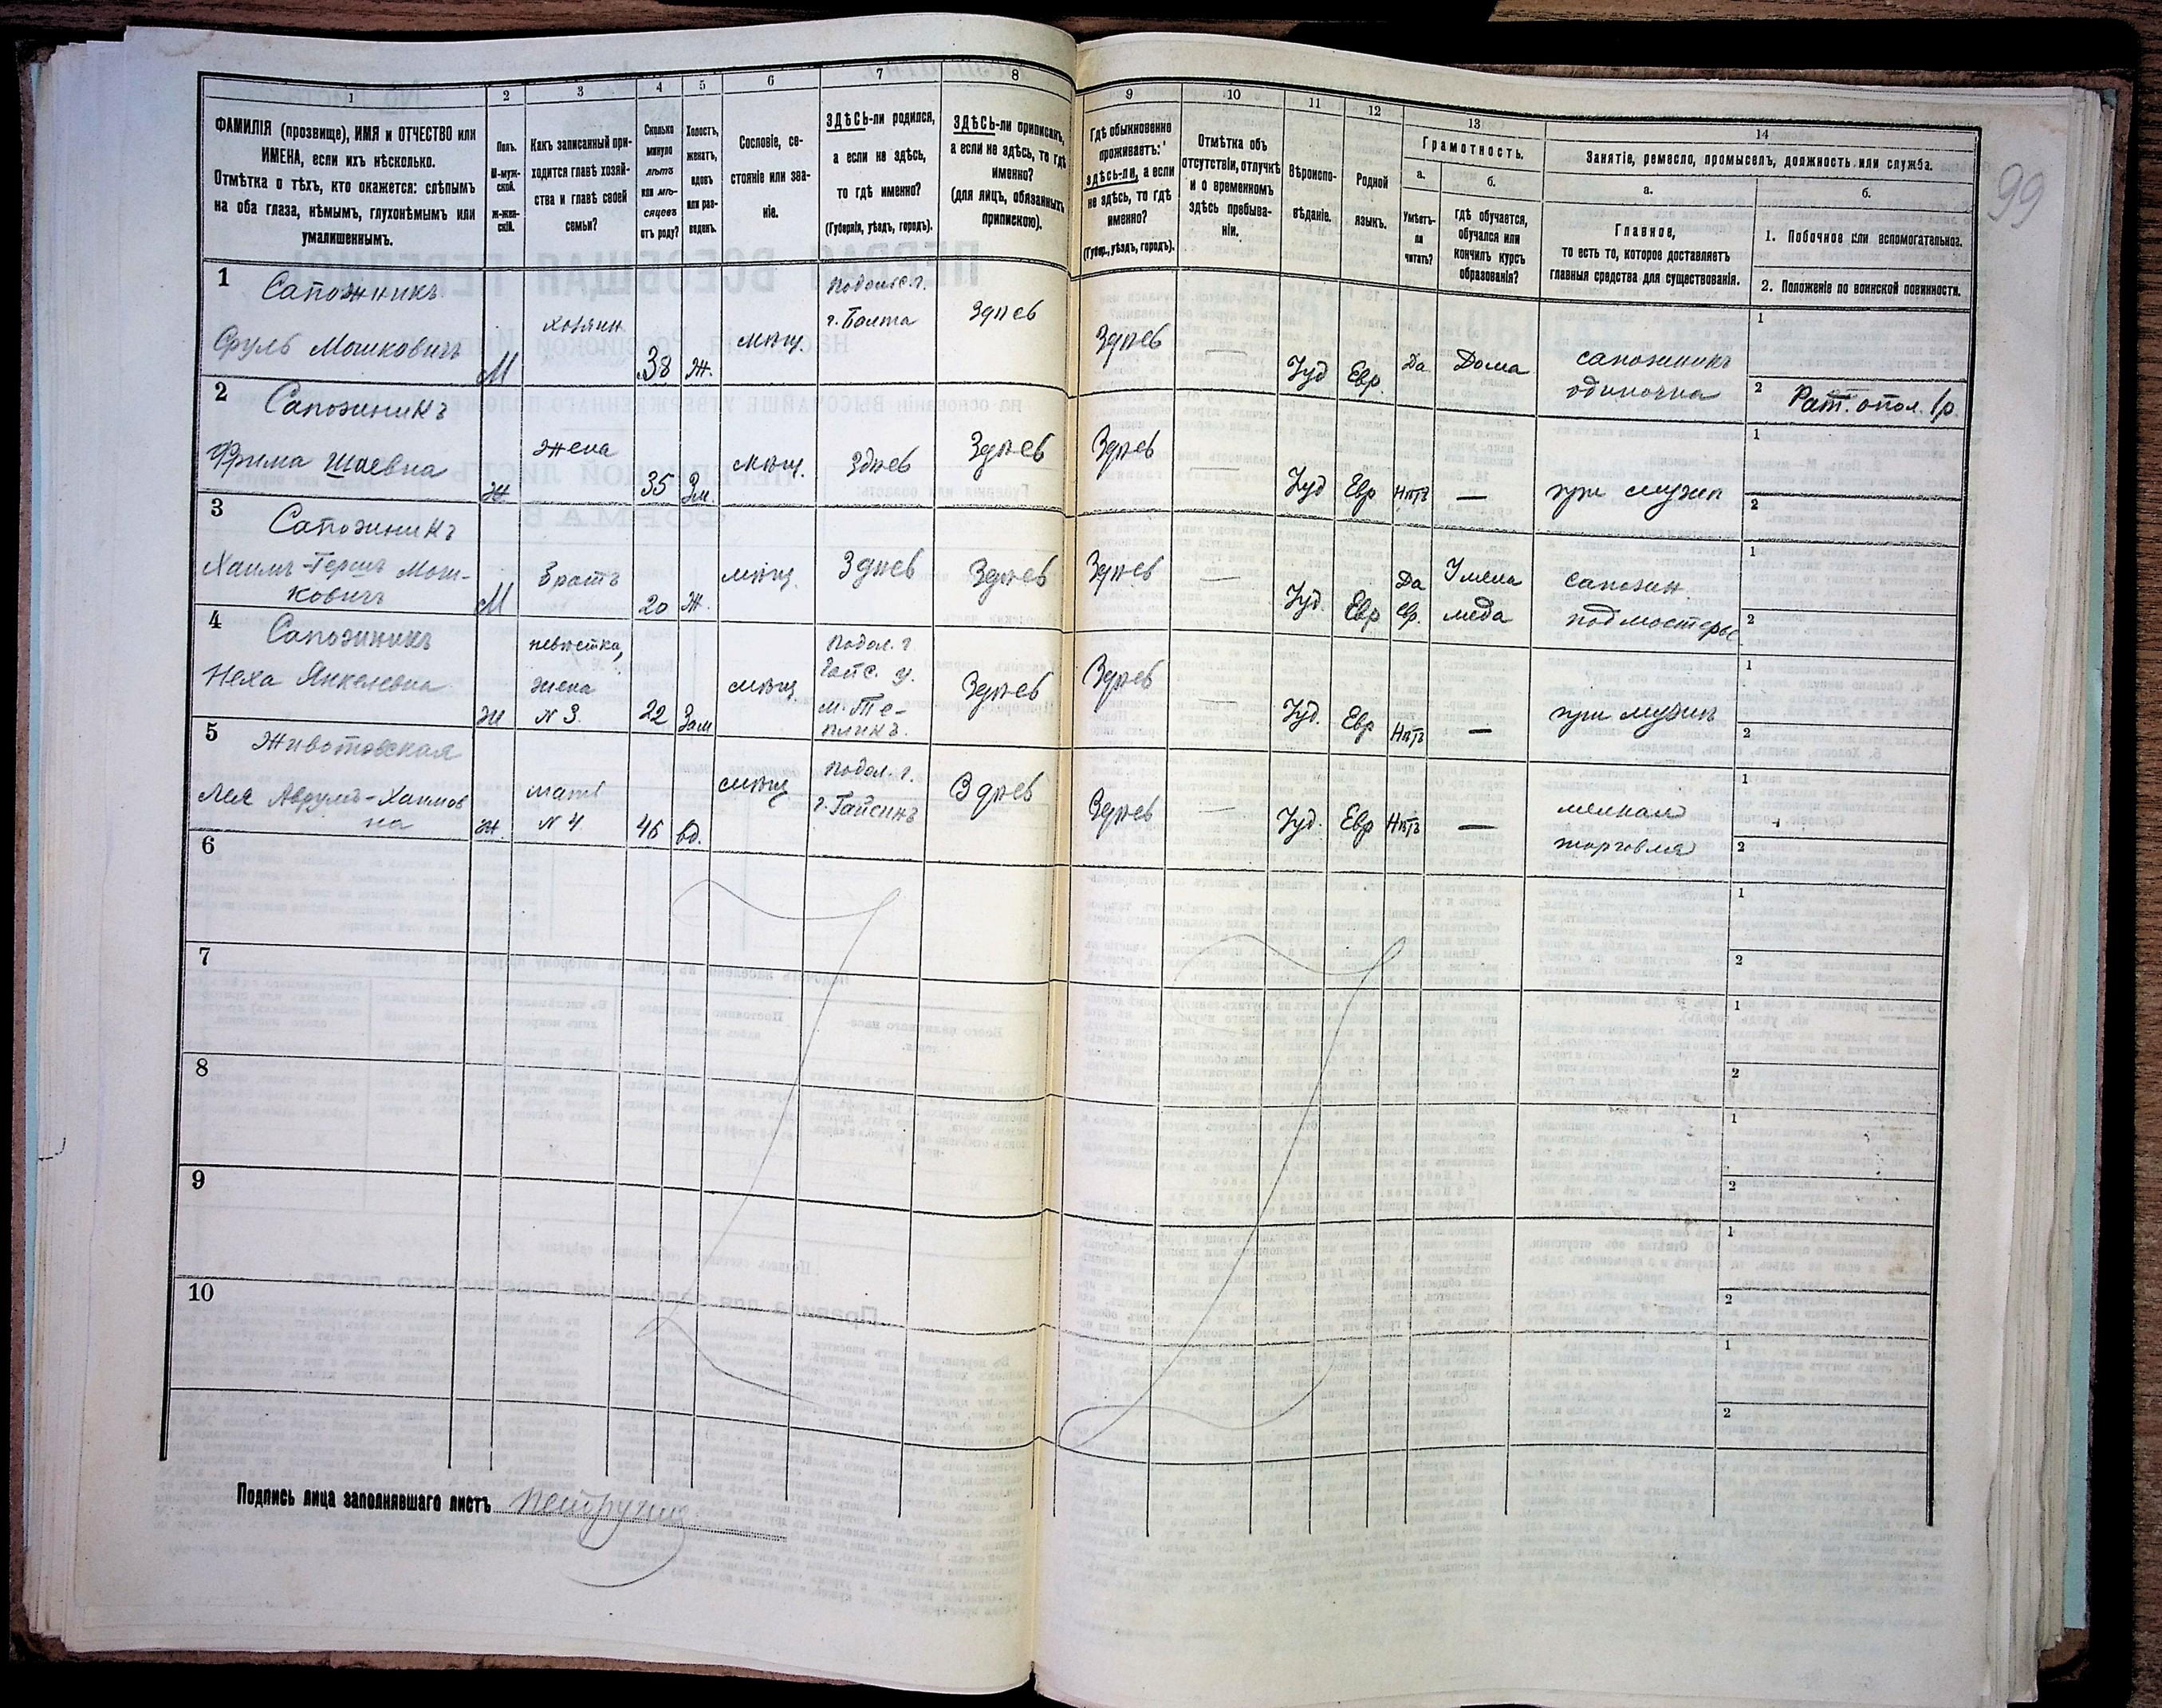 1 2 3 4 5 6 7 8 9 10 11 12 13 14
99
ФАМИЛІЯ (прозвище), ИМЯ и ОТЧЕСТВО или
ИМЕНА, если ихъ нѣсколько.
Отмѣтка о тѣхъ, кто окажется: слѣпымъ
на оба глаза, нѣмымъ, глухонѣмымъ или
умалишеннымъ.
Полъ.
М-муж-
ской.
Ж-жен-
скій.
Какъ записанный при-
ходится главѣ хозяй-
ства и главѣ своей
семьи?
Сколько
минуло
лѣтъ
или мѣ-
сяцевъ
отъ роду?
Холостъ,
женатъ,
вдовъ
или раз-
веденъ.
Сословіе, со-
стояніе или зва-
ніе.
ЗДѢСЬ-ли родился,
а если не здѣсь,
то гдѣ именно?
(Губернія, уѣздъ, городъ).
ЗДѢСЬ-ли приписанъ,
а если не здѣсь, то гдѣ
именно?
(для лицъ, обязанныхъ
припискою).
Гдѣ обыкновенно
проживаетъ:
здѣсь-ли, а если
не здѣсь, то гдѣ
именно?
(Губер., уѣздъ, городъ).
Отмѣтка объ
отсутствіи, отлучкѣ
и о временномъ
здѣсь пребыва-
ніи.
Вѣроиспо-
вѣданіе.
Родной
языкъ.
Грамотность.
а.
Умѣетъ-
ли
читать?
б.
Гдѣ обучается,
обучался или
кончилъ курсъ
образованія?
Занятіе, ремесло, промыселъ, должность или служба.
а.
Главное,
то есть то, которое доставляетъ
главныя средства для существованія.
б.
1. Побочное или вспомогательное.
2. Положеніе по воинской повинности.
1
Сапожникъ
Сруль Мошковичъ
М
хозяин
38
Ж.
мѣщ.
Подольс. г.
г. Балта
Здѣсь
Здѣсь
—
Іуд
Евр.
Да
Дома
сапожникъ
одиночка
1
2 Рат. опол. 1 р.
2
Сапожникъ
Фрима Шаевна
Ж
жена
35
Зм.
мѣщ.
Здѣсь
Здѣсь
Здѣсь
—
Іуд
Евр
Нѣтъ
—
при мужѣ
1
2
3
Сапожникъ
Хаимъ-Гершъ Мош-
ковичъ
М
Братъ
20
Ж.
мѣщ.
Здѣсь
Здѣсь
Здѣсь
—
Іуд.
Евр
Да
ев.
У мела
меда
сапожн.
подмастерье
1
2
4
Сапожникъ
Неха Янкелевна
Ж
невѣстка,
жена
N 3.
22
Зам
мѣщ
Подол. г
Гайс. у.
м. Те-
пликъ.
Здѣсь
Здѣсь
—
Іуд.
Евр
Нѣтъ
—
при мужѣ
1
2
5
Животовская
Лея Аврумъ-Хаимов
на
Ж.
мать
N 4
46
вд.
мѣщ
Подол. г.
г. Гайсинъ
Здѣсь
Здѣсь
—
Іуд.
Евр
Нѣтъ
—
мелкая
торговля
1
2
6
1
2
7
1
2
8
1
2
9
1
2
10
1
2
Подпись лица заполнявшаго листъ